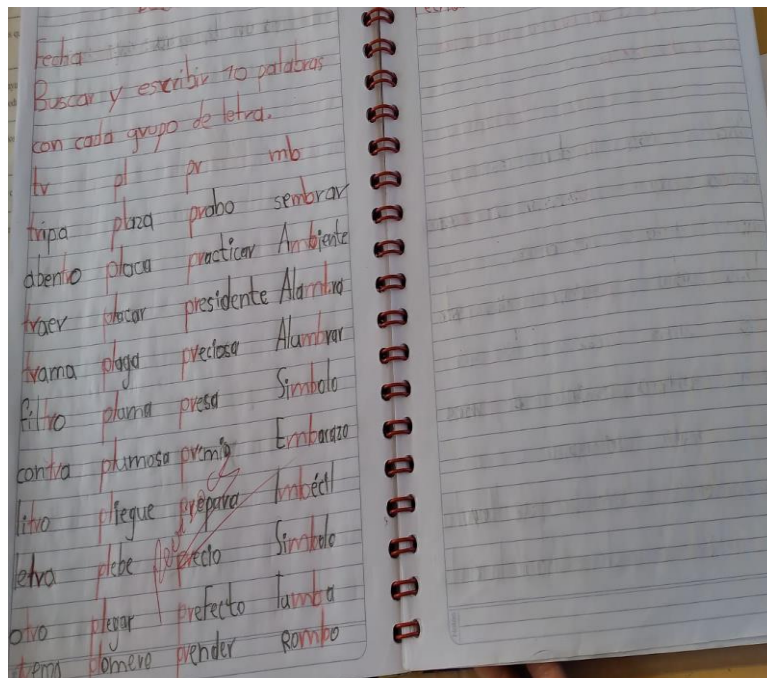 Fecha
Buscar y escribir 10 palabras
con cada grupo de letra.
tr pl pr mb
tripa plaza probo sembrar
placa practicar Ambiente
traer placar presidente Alambra
trama plaga preciosa Alumbrar
filtro pluma presa Simbolo
contra plumosa premio Embarazo
litro pliegue prepara Imbécil
letra plebe precio Simbolo
otro plegar prefecto Tumba
plomero prender Rombo